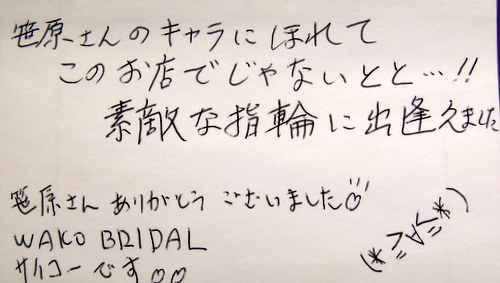 笹原さんのキャラにほれて
このお店でじゃないとと…!!
素敵な指輪に出逢えました
笹原さんありがとうございました♡
WAKO BRIDAL
サイコーです♡♡
(*≧∀≦*)